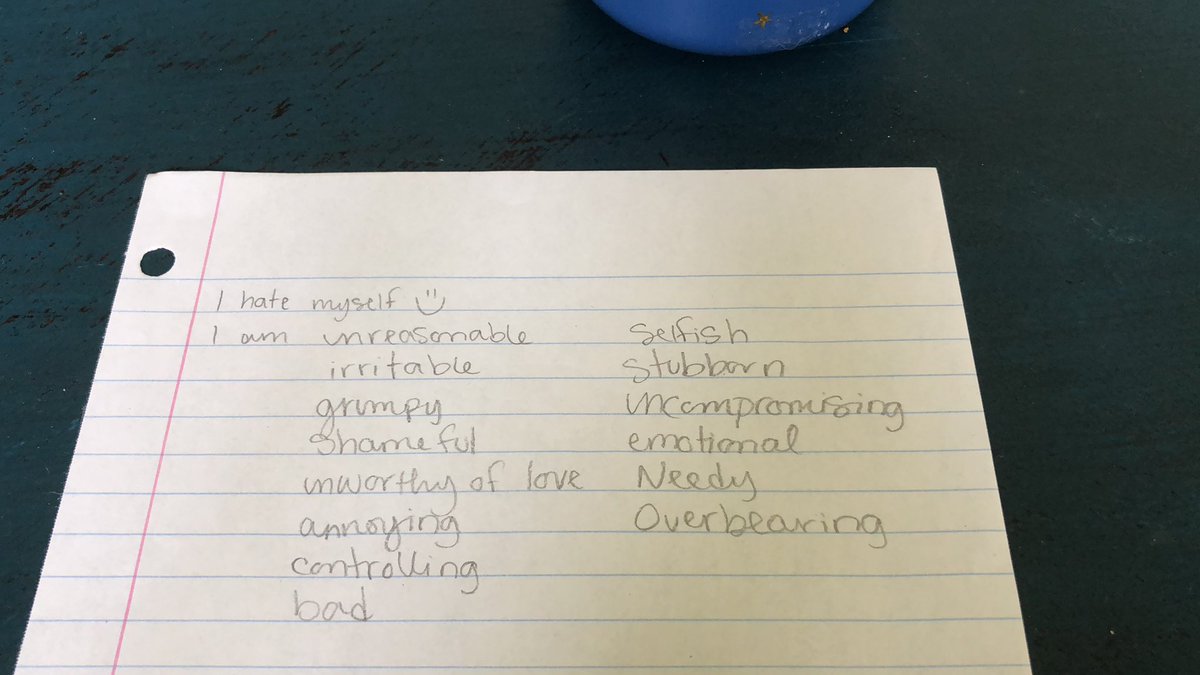 I hate myself ü
I am unreasonable selfish
irritable stubborn
grumpy uncompromising
shameful emotional
unworthy of love Needy
annoying Overbearing
controlling
bad